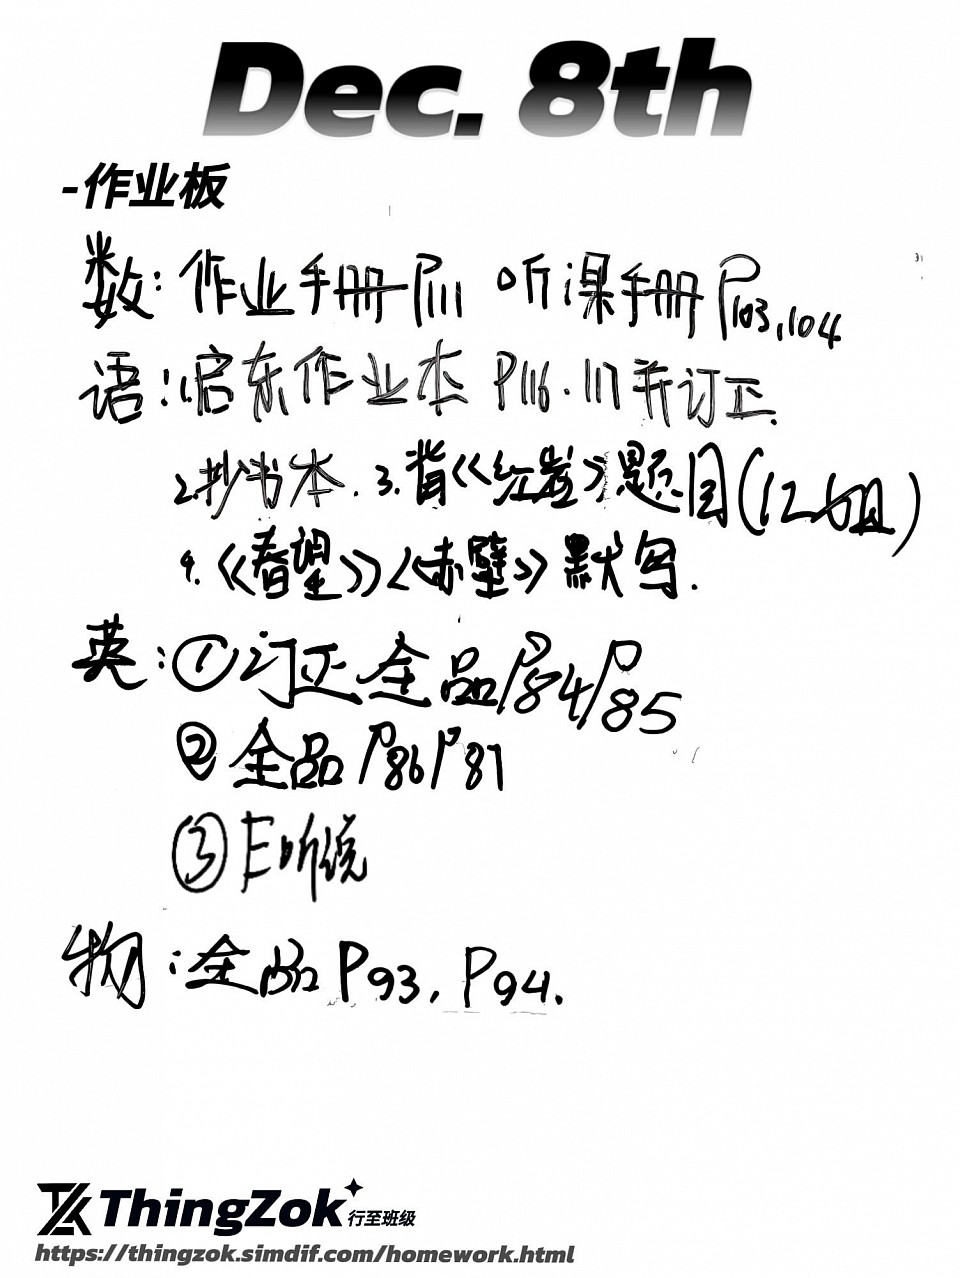 Dec. 8th
-作业板
数: 作业手册P111 听课手册P103,104
语: 1.启东作业本 P116.117并订正.
2.抄书本. 3.背《红岩》题目(12组)
4.《春望》《赤壁》默写.
英: ①订正全品P84/P85
②全品P86/P87
③E听说
物: 全品P93, P94.
ThingZok 行至班级
https://thingzok.simdif.com/homework.html